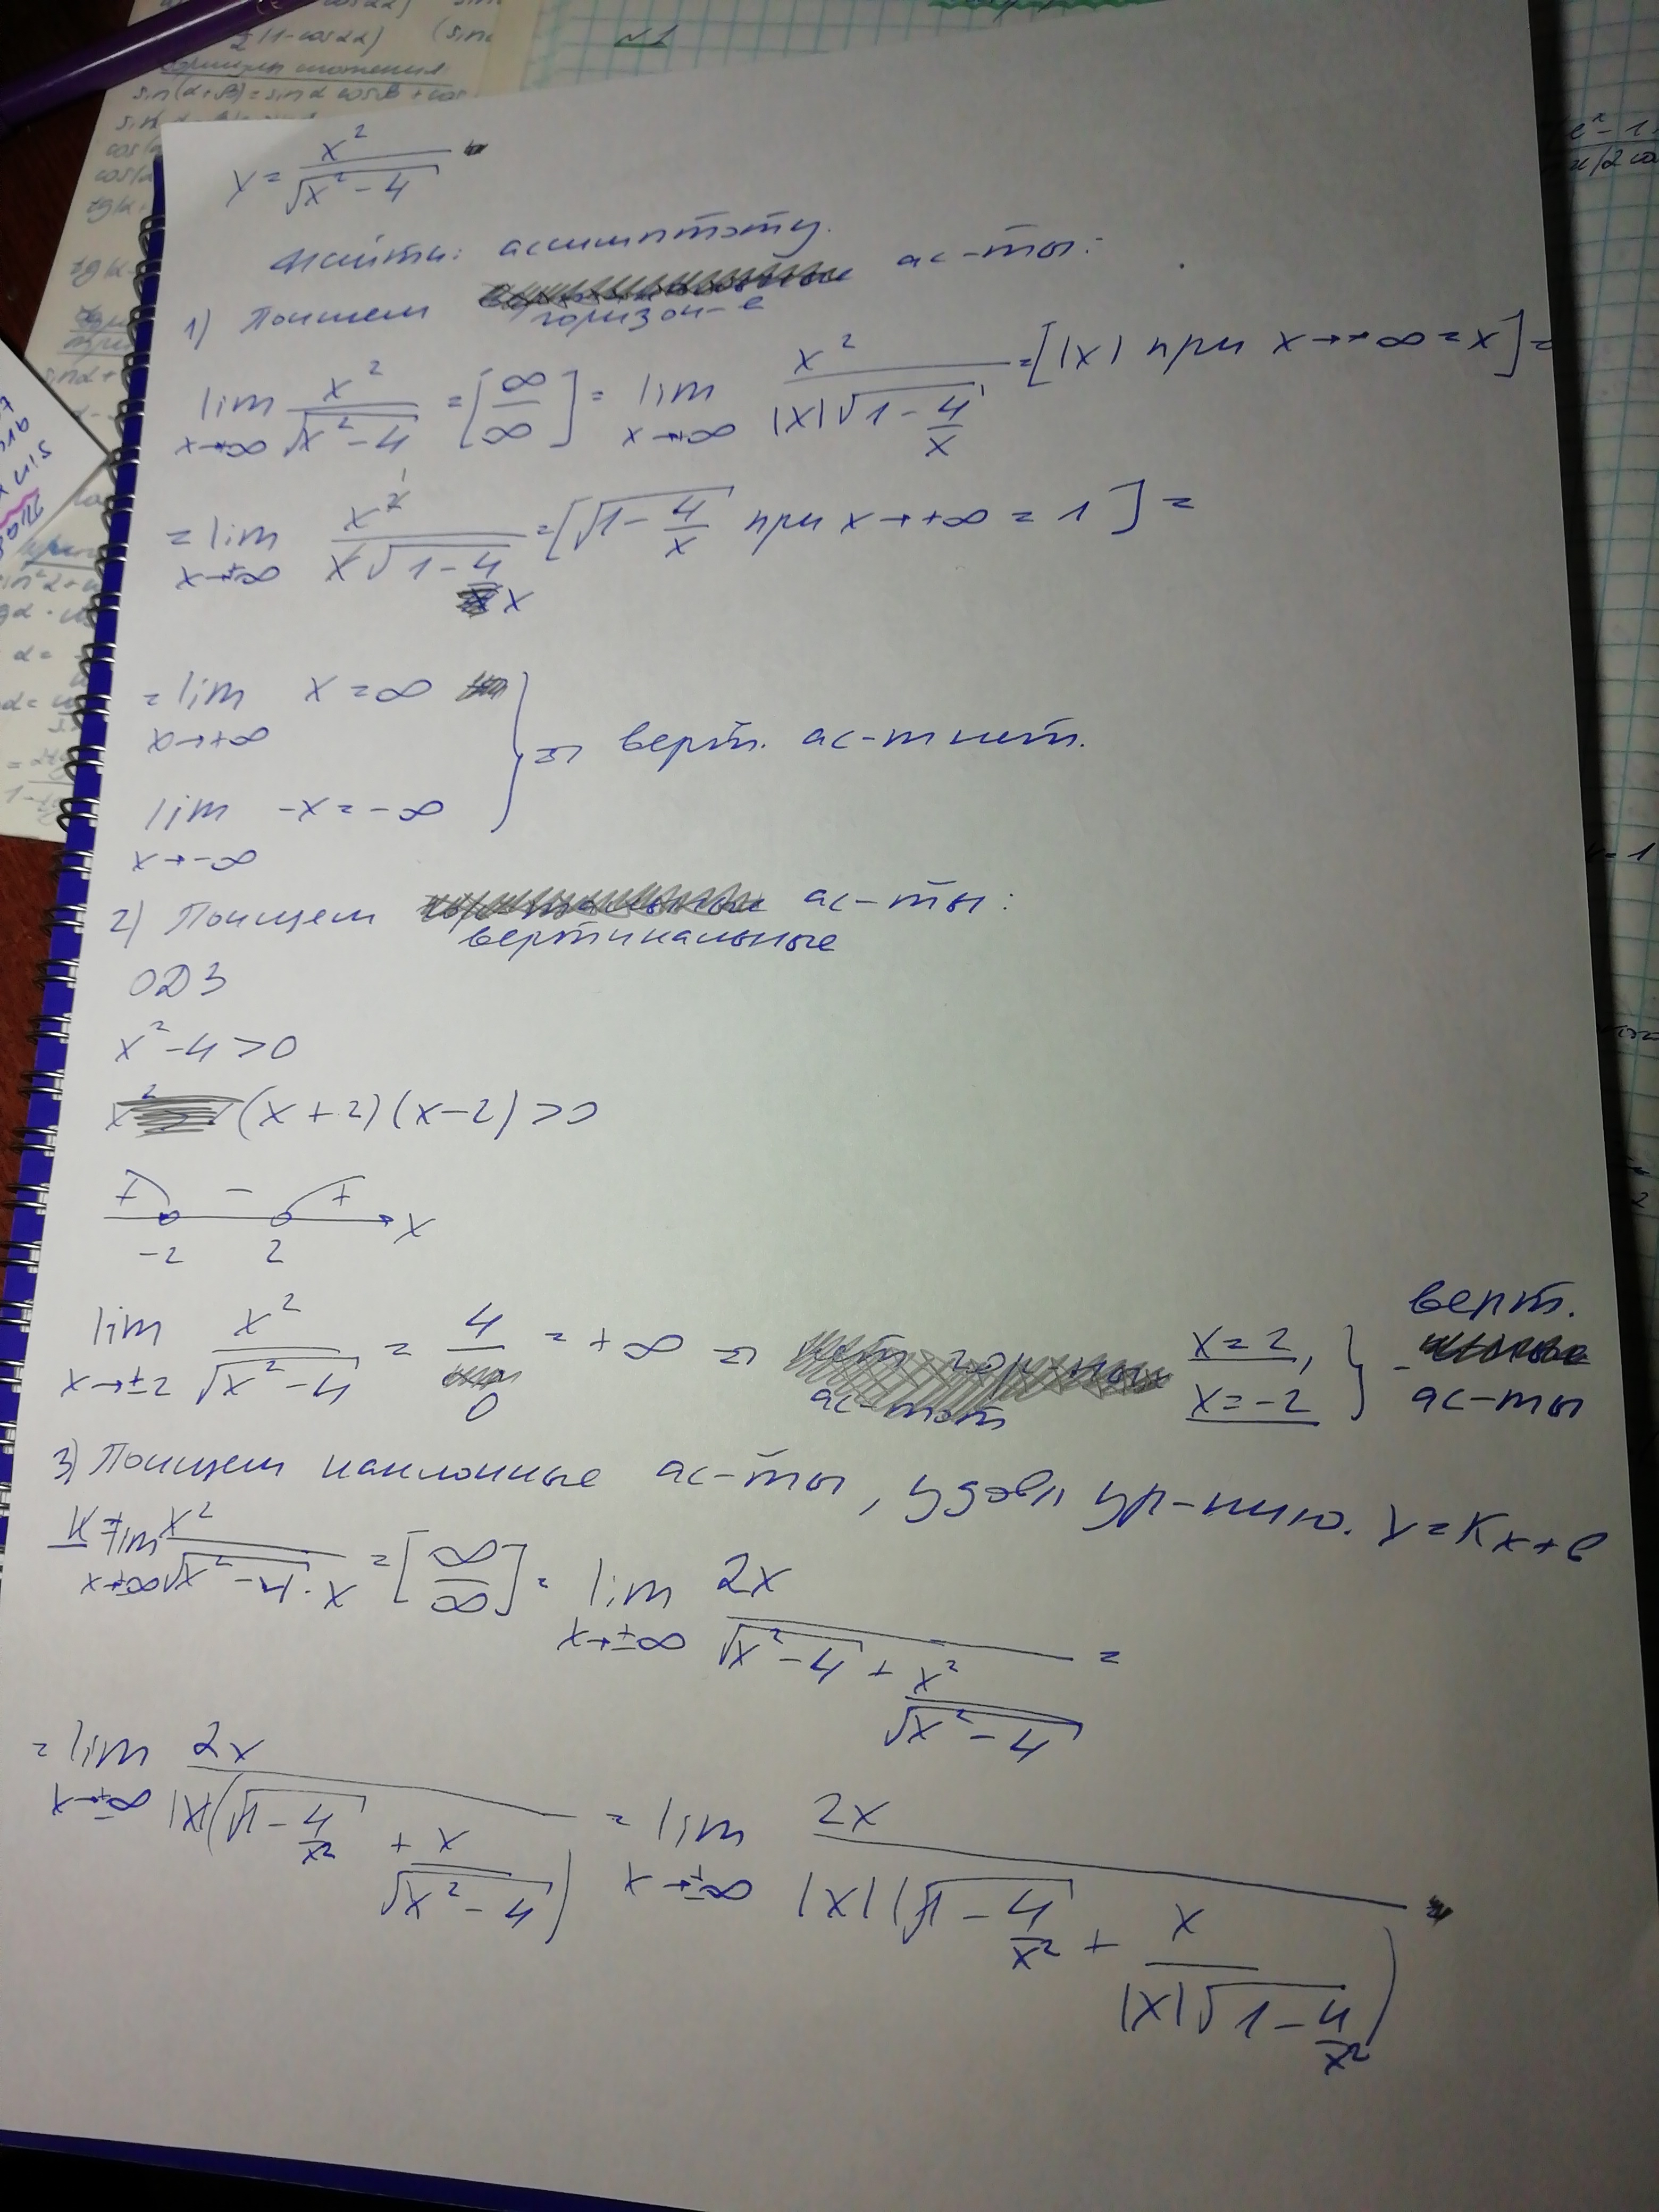 cos2α)
½(1-cos2α) (sinα
sin(α+β)=sinα cosβ+cos
№1
y = x²/√(x²-4)
Найти: ассимптоту.
1) Поищем горизон-е ас-ты:
lim x→∞ x²/√(x²-4) = [∞/∞] = lim x→+∞ x²/(|x|√(1-4/x)) = [|x| при x→+∞ = x] =
= lim x→±∞ x²/(x√(1-4/x)) = [√(1-4/x) при x→+∞ = 1] =
= lim x→+∞ x = ∞
lim x→-∞ -x = -∞ } => верт. ас-т нет.
2) Поищем вертикальные ас-ты:
ОДЗ
x²-4>0
(x+2)(x-2)>0
+ - + x
-2 2
lim x→±2 x²/√(x²-4) = 4/0 = +∞ => x=2, x=-2 } - верт. ас-ты
3) Поищем наклонные ас-ты, удовл ур-нию. y=Kx+b
K = lim x→±∞ x²/(√(x²-4)·x) = [∞/∞] = lim x→±∞ 2x/(√(x²-4) + x²/√(x²-4)) =
= lim x→±∞ 2x/(|x|(√(1-4/x²) + x/√(x²-4))) = lim x→±∞ 2x/(|x|(√(1-4/x²) + x/(|x|√(1-4/x²)))) =